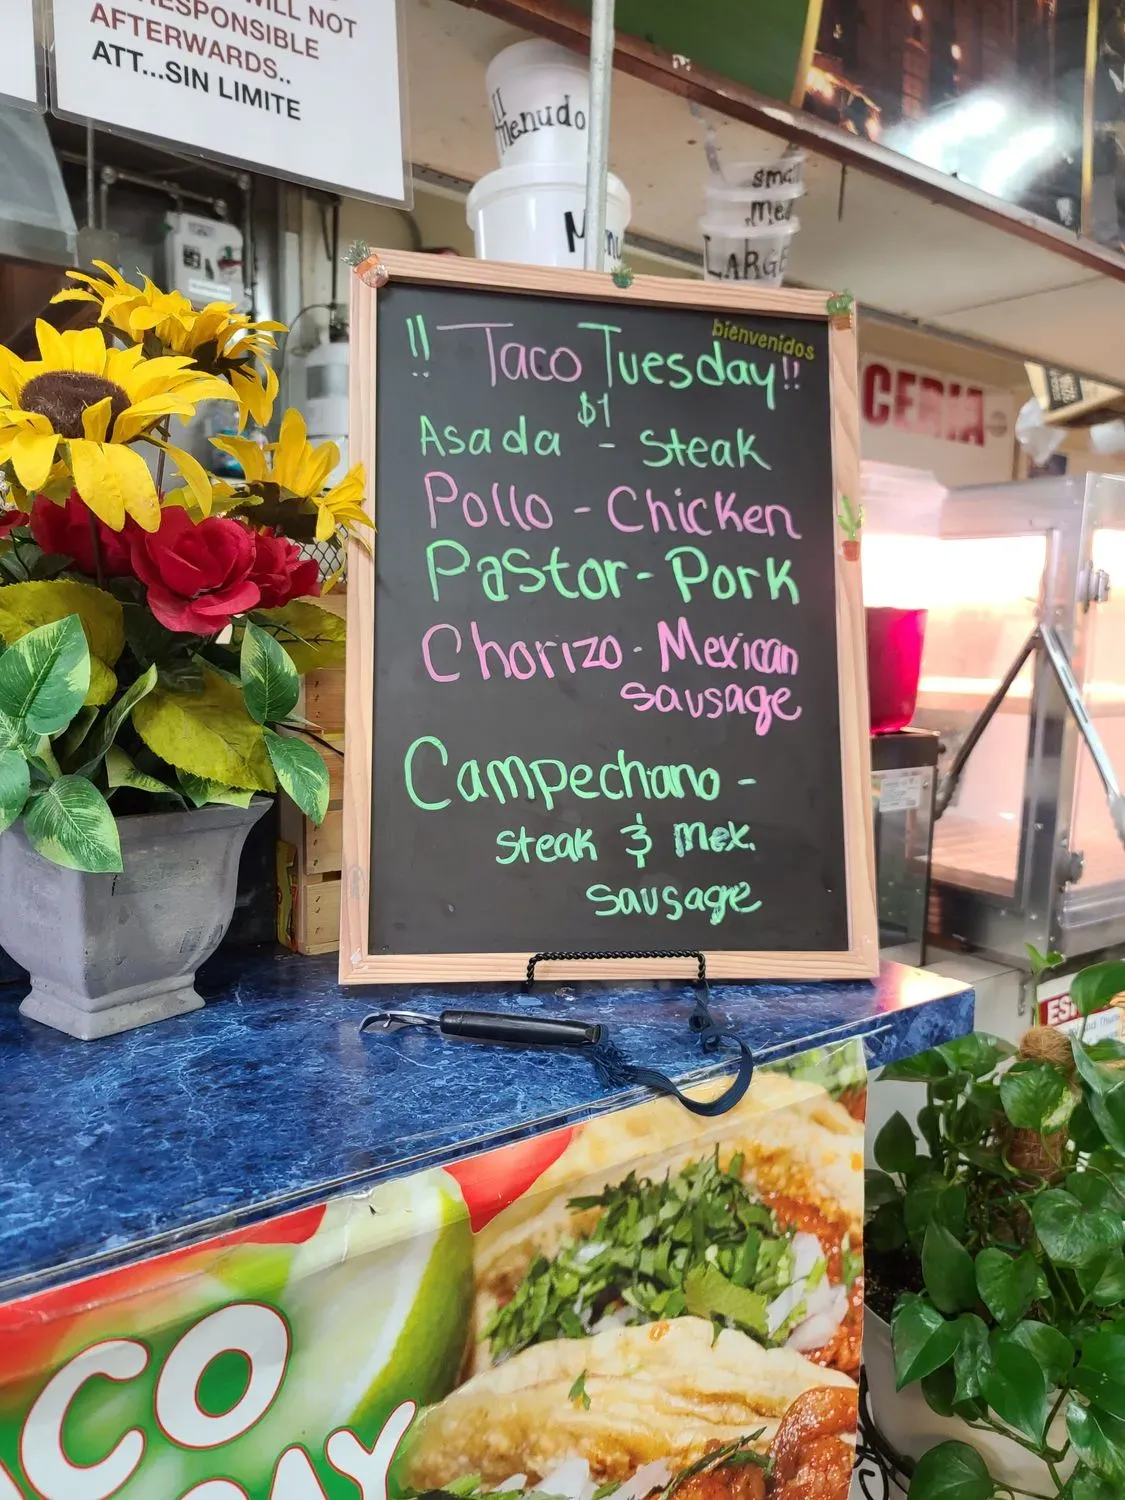 WILL NOT
RESPONSIBLE
AFTERWARDS..
ATT...SIN LIMITE
Menudo
small
Med
LARGE
bienvenidos
!! Taco Tuesday!!
$1
Asada - steak
Pollo - Chicken
Pastor - Pork
Chorizo - Mexican
sausage
Campechano -
steak & Mex.
sausage
CERIA